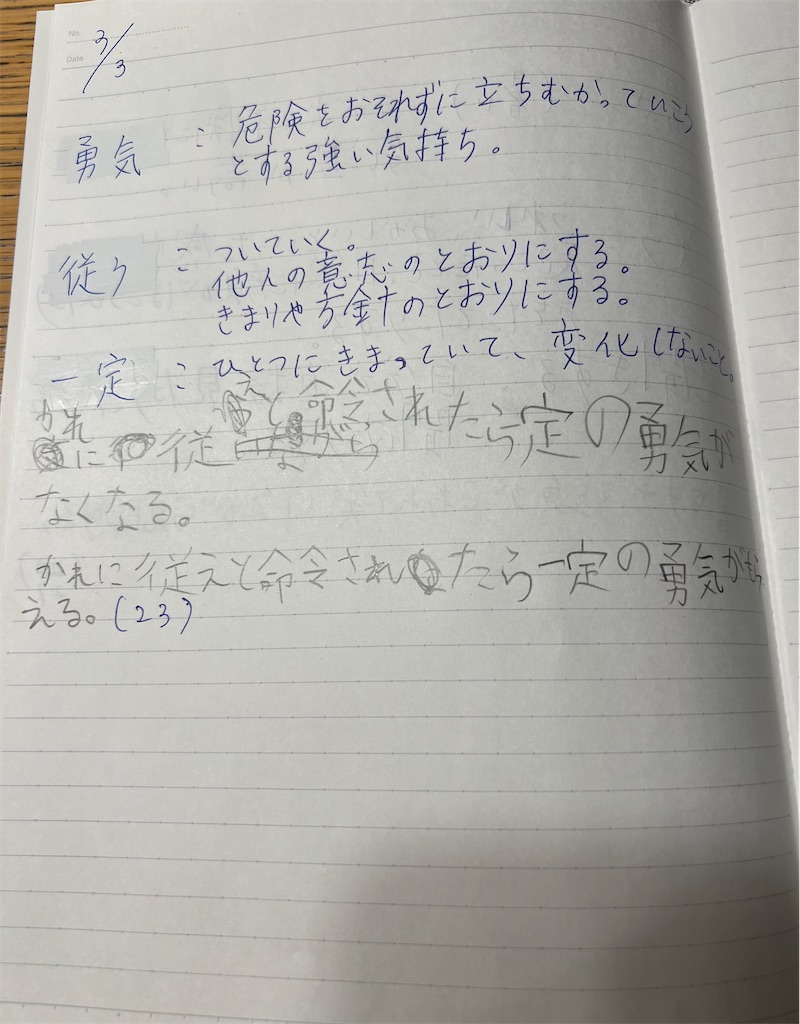 No.
Date
3/3
勇気 : 危険をおそれずに立ちむかっていこう
とする強い気持ち。
従う : ついていく。
他人の意志のとおりにする。
きまりや方針のとおりにする。
一定 : ひとつにきまっていて、変化しないこと。
かれに従えと命令されたら定の勇気が
なくなる。
かれに従えと命令されたら一定の勇気がもら
える。(23)